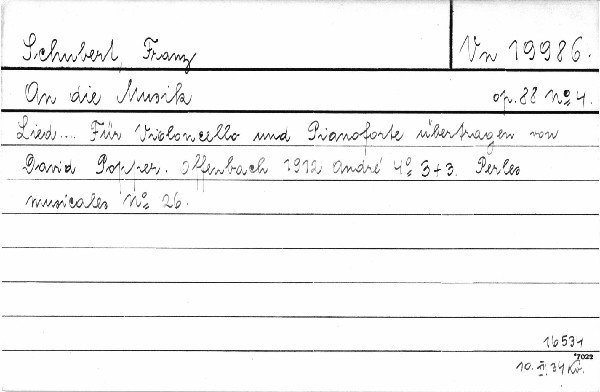 Schubert, Franz
Vn 19986.
An die Musik
op. 88 No 4.
Lied.... Für Violoncello und Pianoforte übertragen von
David Popper. Offenbach 1912 André 4o 3+3. Perles
musicales No 26.
16531
7022
10. II. 34 Kr.